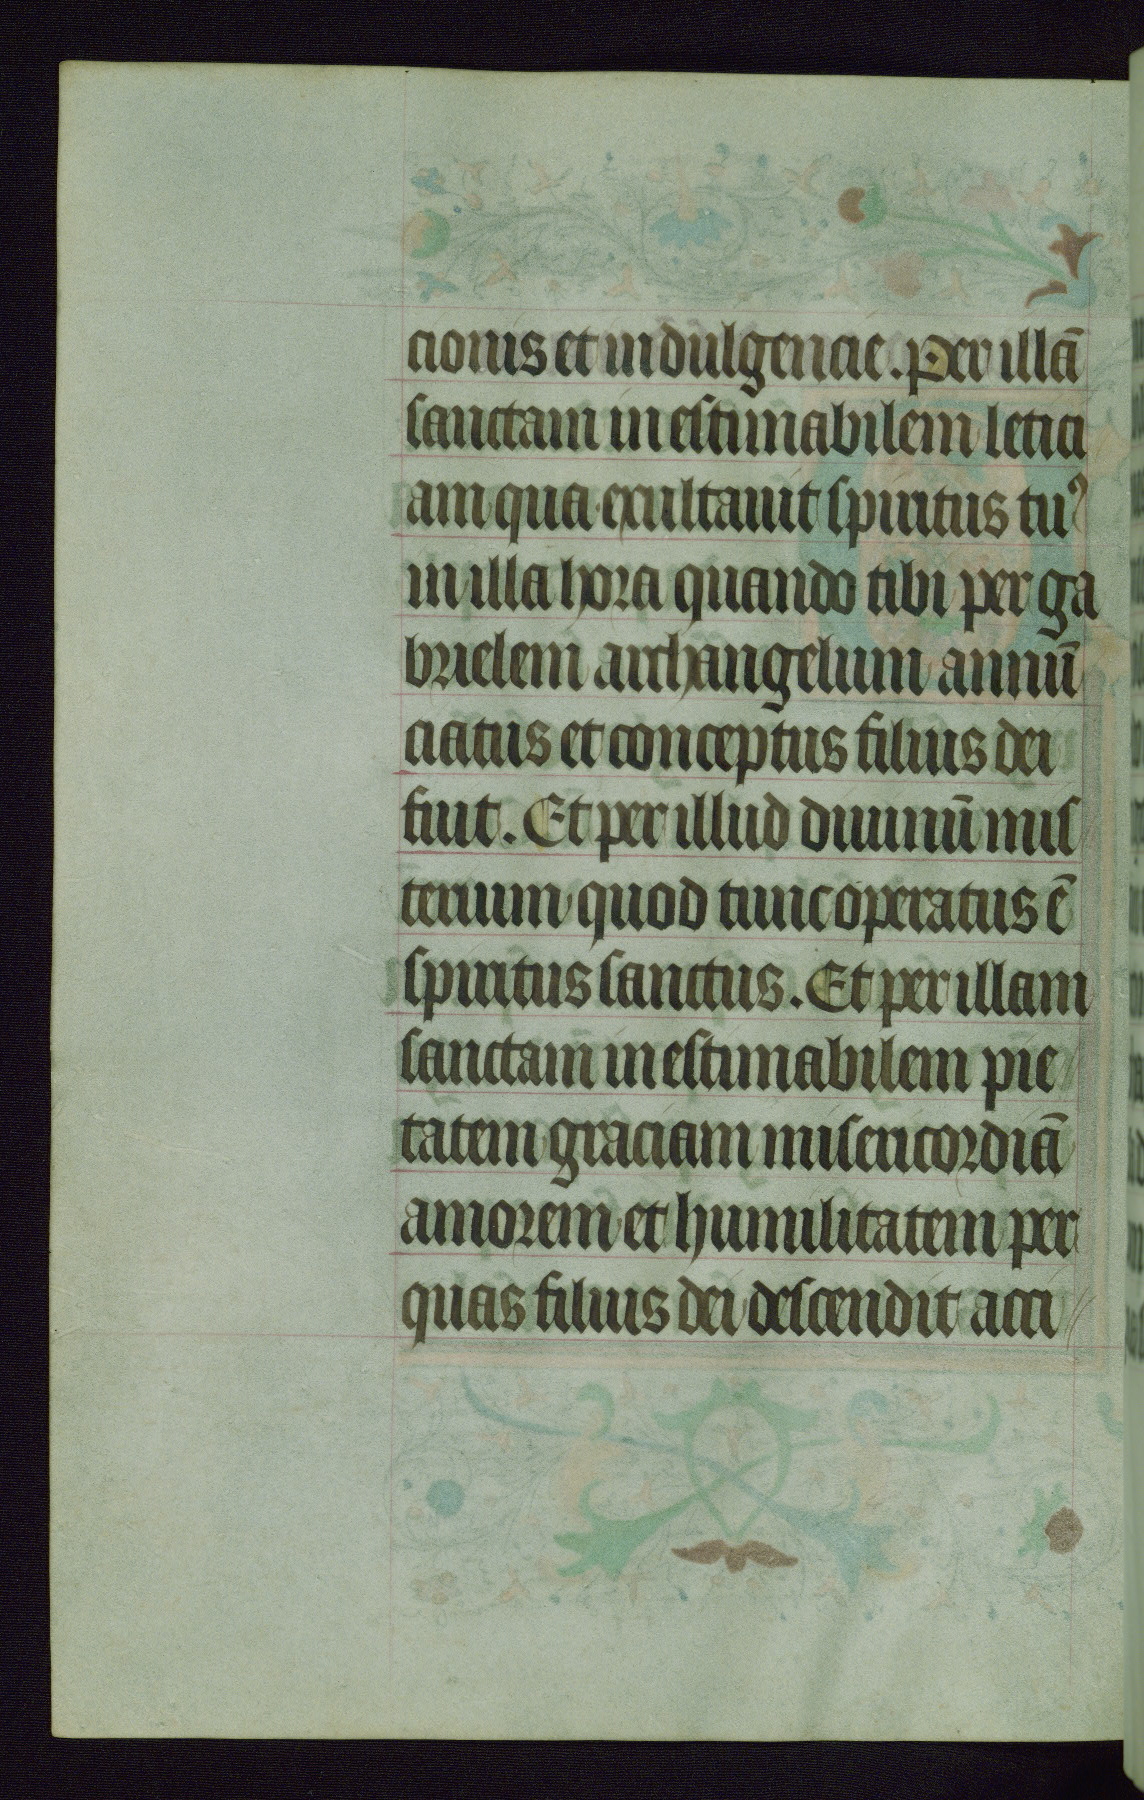 cionis et indulgencie. Per illā
sanctam inestimabilem letici
am qua exultauit spiritus tuꝰ
in illa hora quando tibi per ga
brielem archangelum annū
ciatus et conceptus filius dei
fuit. Et per illud diuinū mis
terium quod tunc operatus ē
spiritus sanctus. Et per illam
sanctam inestimabilem pie
tatem graciam misericordiā
amorem et humilitatem per
quas filius dei descendit acci